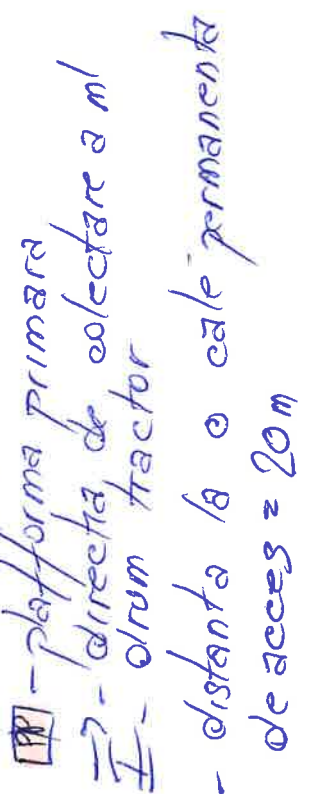 PP - platforma primara
- directia de colectare a ml
- drum tractor
- distanta la o cale permanenta
de acces = 20 m